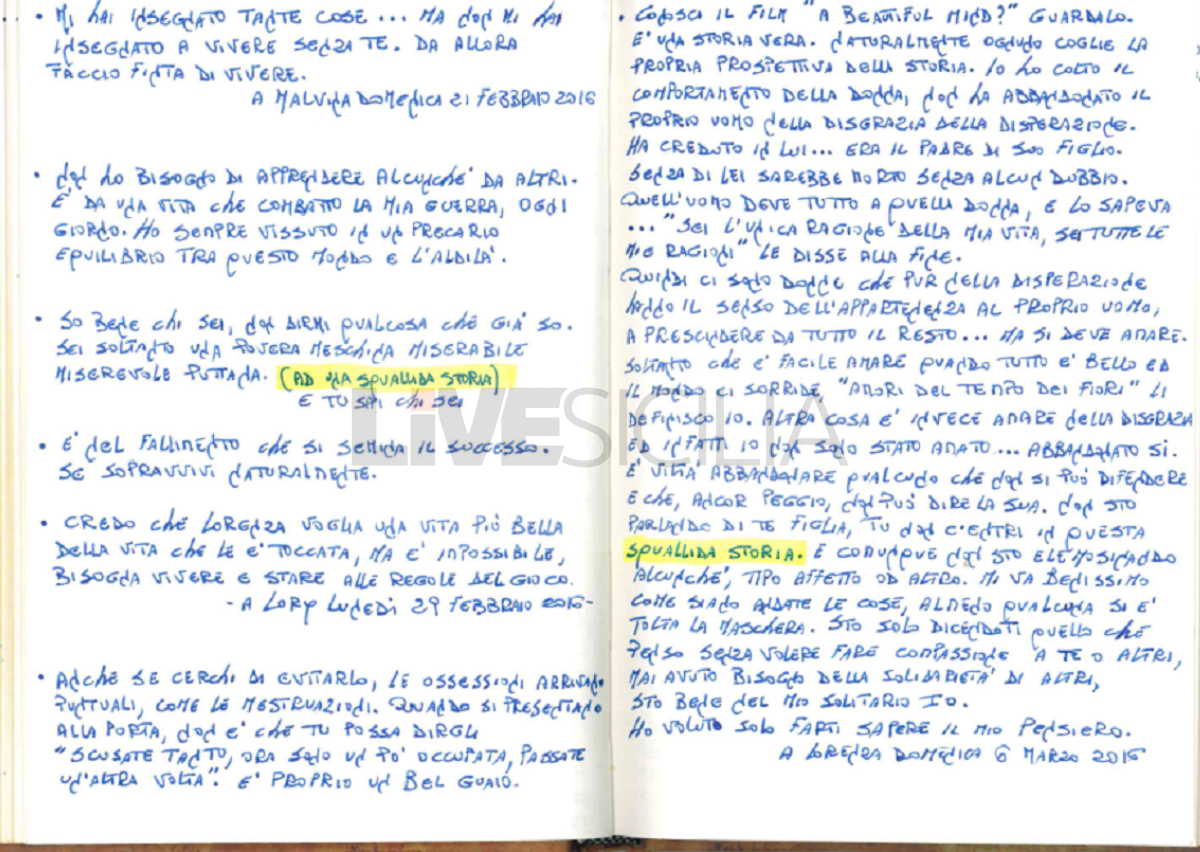 • MI HAI INSEGNATO TANTE COSE ... MA NON MI HAI
INSEGNATO A VIVERE SENZA TE. DA ALLORA
FACCIO FINTA DI VIVERE.
A MALVINA DOMENICA 21 FEBBRAIO 2016
• NON HO BISOGNO DI APPRENDERE ALCUNCHE' DA ALTRI.
E' DA UNA VITA CHE COMBATTO LA MIA GUERRA, OGNI
GIORNO. HO SEMPRE VISSUTO IN UN PRECARIO
EPUILIBRIO TRA QUESTO MONDO E L'ALDILA'.
• SO BENE CHI SEI, NON DIRMI QUALCOSA CHE GIA' SO.
SEI SOLTANTO UNA POVERA MESCHINA MISERABILE
MISEREVOLE PUTTANA. (AD UNA SQUALLIDA STORIA)
E TU SAI CHI SEI
• E' NEL FALLIMENTO CHE SI SEMINA IL SUCCESSO.
SE SOPRAVVIVI NATURALMENTE.
• CREDO CHE LORENZA VOGLIA UNA VITA PIÙ BELLA
DELLA VITA CHE LE E' TOCCATA, MA E' IMPOSSIBILE,
BISOGNA VIVERE E STARE ALLE REGOLE DEL GIOCO.
- A LORY LUNEDÌ 29 FEBBRAIO 2016 -
• ANCHE SE CERCHI DI EVITARLO, LE OSSESSIONI ARRIVANO
PUNTUALI, COME LE MESTRUAZIONI. QUANDO SI PRESENTANO
ALLA PORTA, NON E' CHE TU POSSA DIRGLI
"SCUSATE TANTO, ORA SONO UN PO' OCCUPATA, PASSATE
UN'ALTRA VOLTA". E' PROPRIO UN BEL GUAIO.
• CONOSCI IL FILM "A BEAUTIFUL MIND?" GUARDALO.
E' UNA STORIA VERA. NATURALMENTE OGNUNO COGLIE LA
PROPRIA PROSPETTIVA DELLA STORIA. IO HO COLTO IL
COMPORTAMENTO DELLA DONNA, NON HA ABBANDONATO IL
PROPRIO UOMO NELLA DISGRAZIA DELLA DISPERAZIONE.
HA CREDUTO IN LUI... ERA IL PADRE DI SUO FIGLIO.
SENZA DI LEI SAREBBE MORTO SENZA ALCUN DUBBIO.
QUELL'UOMO DEVE TUTTO A QUELLA DONNA, E LO SAPEVA
... "SEI L'UNICA RAGIONE DELLA MIA VITA, SEI TUTTE LE
MIE RAGIONI" LE DISSE ALLA FINE.
QUINDI CI SONO DONNE CHE PUR NELLA DISPERAZIONE
HANNO IL SENSO DELL'APPARTENENZA AL PROPRIO UOMO,
A PRESCINDERE DA TUTTO IL RESTO... MA SI DEVE AMARE.
SOLTANTO CHE E' FACILE AMARE QUANDO TUTTO E' BELLO ED
IL MONDO CI SORRIDE "AMORI DEL TEMPO DEI FIORI" LI
DEFINISCO IO. ALTRA COSA E' INVECE AMARE NELLA DISGRAZIA
ED INFATTI IO NON SONO STATO AMATO... ABBANDONATO SI.
E' VILTÀ ABBANDONARE QUALCUNO CHE NON SI PUÒ DIFENDERE
E CHE, ANCOR PEGGIO, NON PUÒ DIRE LA SUA. NON STO
PARLANDO DI TE FIGLIA, TU NON C'ENTRI IN QUESTA
SQUALLIDA STORIA. E COMUNQUE NON STO ELEMOSINANDO
ALCUNCHE', TIPO AFFETTO OD ALTRO. MI VA BENISSIMO
COME SIANO ANDATE LE COSE, ALMENO QUALCUNA SI E'
TOLTA LA MASCHERA. STO SOLO DICENDOTI QUELLO CHE
PENSO SENZA VOLERE FARE COMPASSIONE A TE O ALTRI,
MAI AVUTO BISOGNO DELLA SOLIDARIETA' DI ALTRI,
STO BENE NEL MIO SOLITARIO IO.
HO VOLUTO SOLO FARTI SAPERE IL MIO PENSIERO.
A LORENZA DOMENICA 6 MARZO 2016
LIVESICILIA